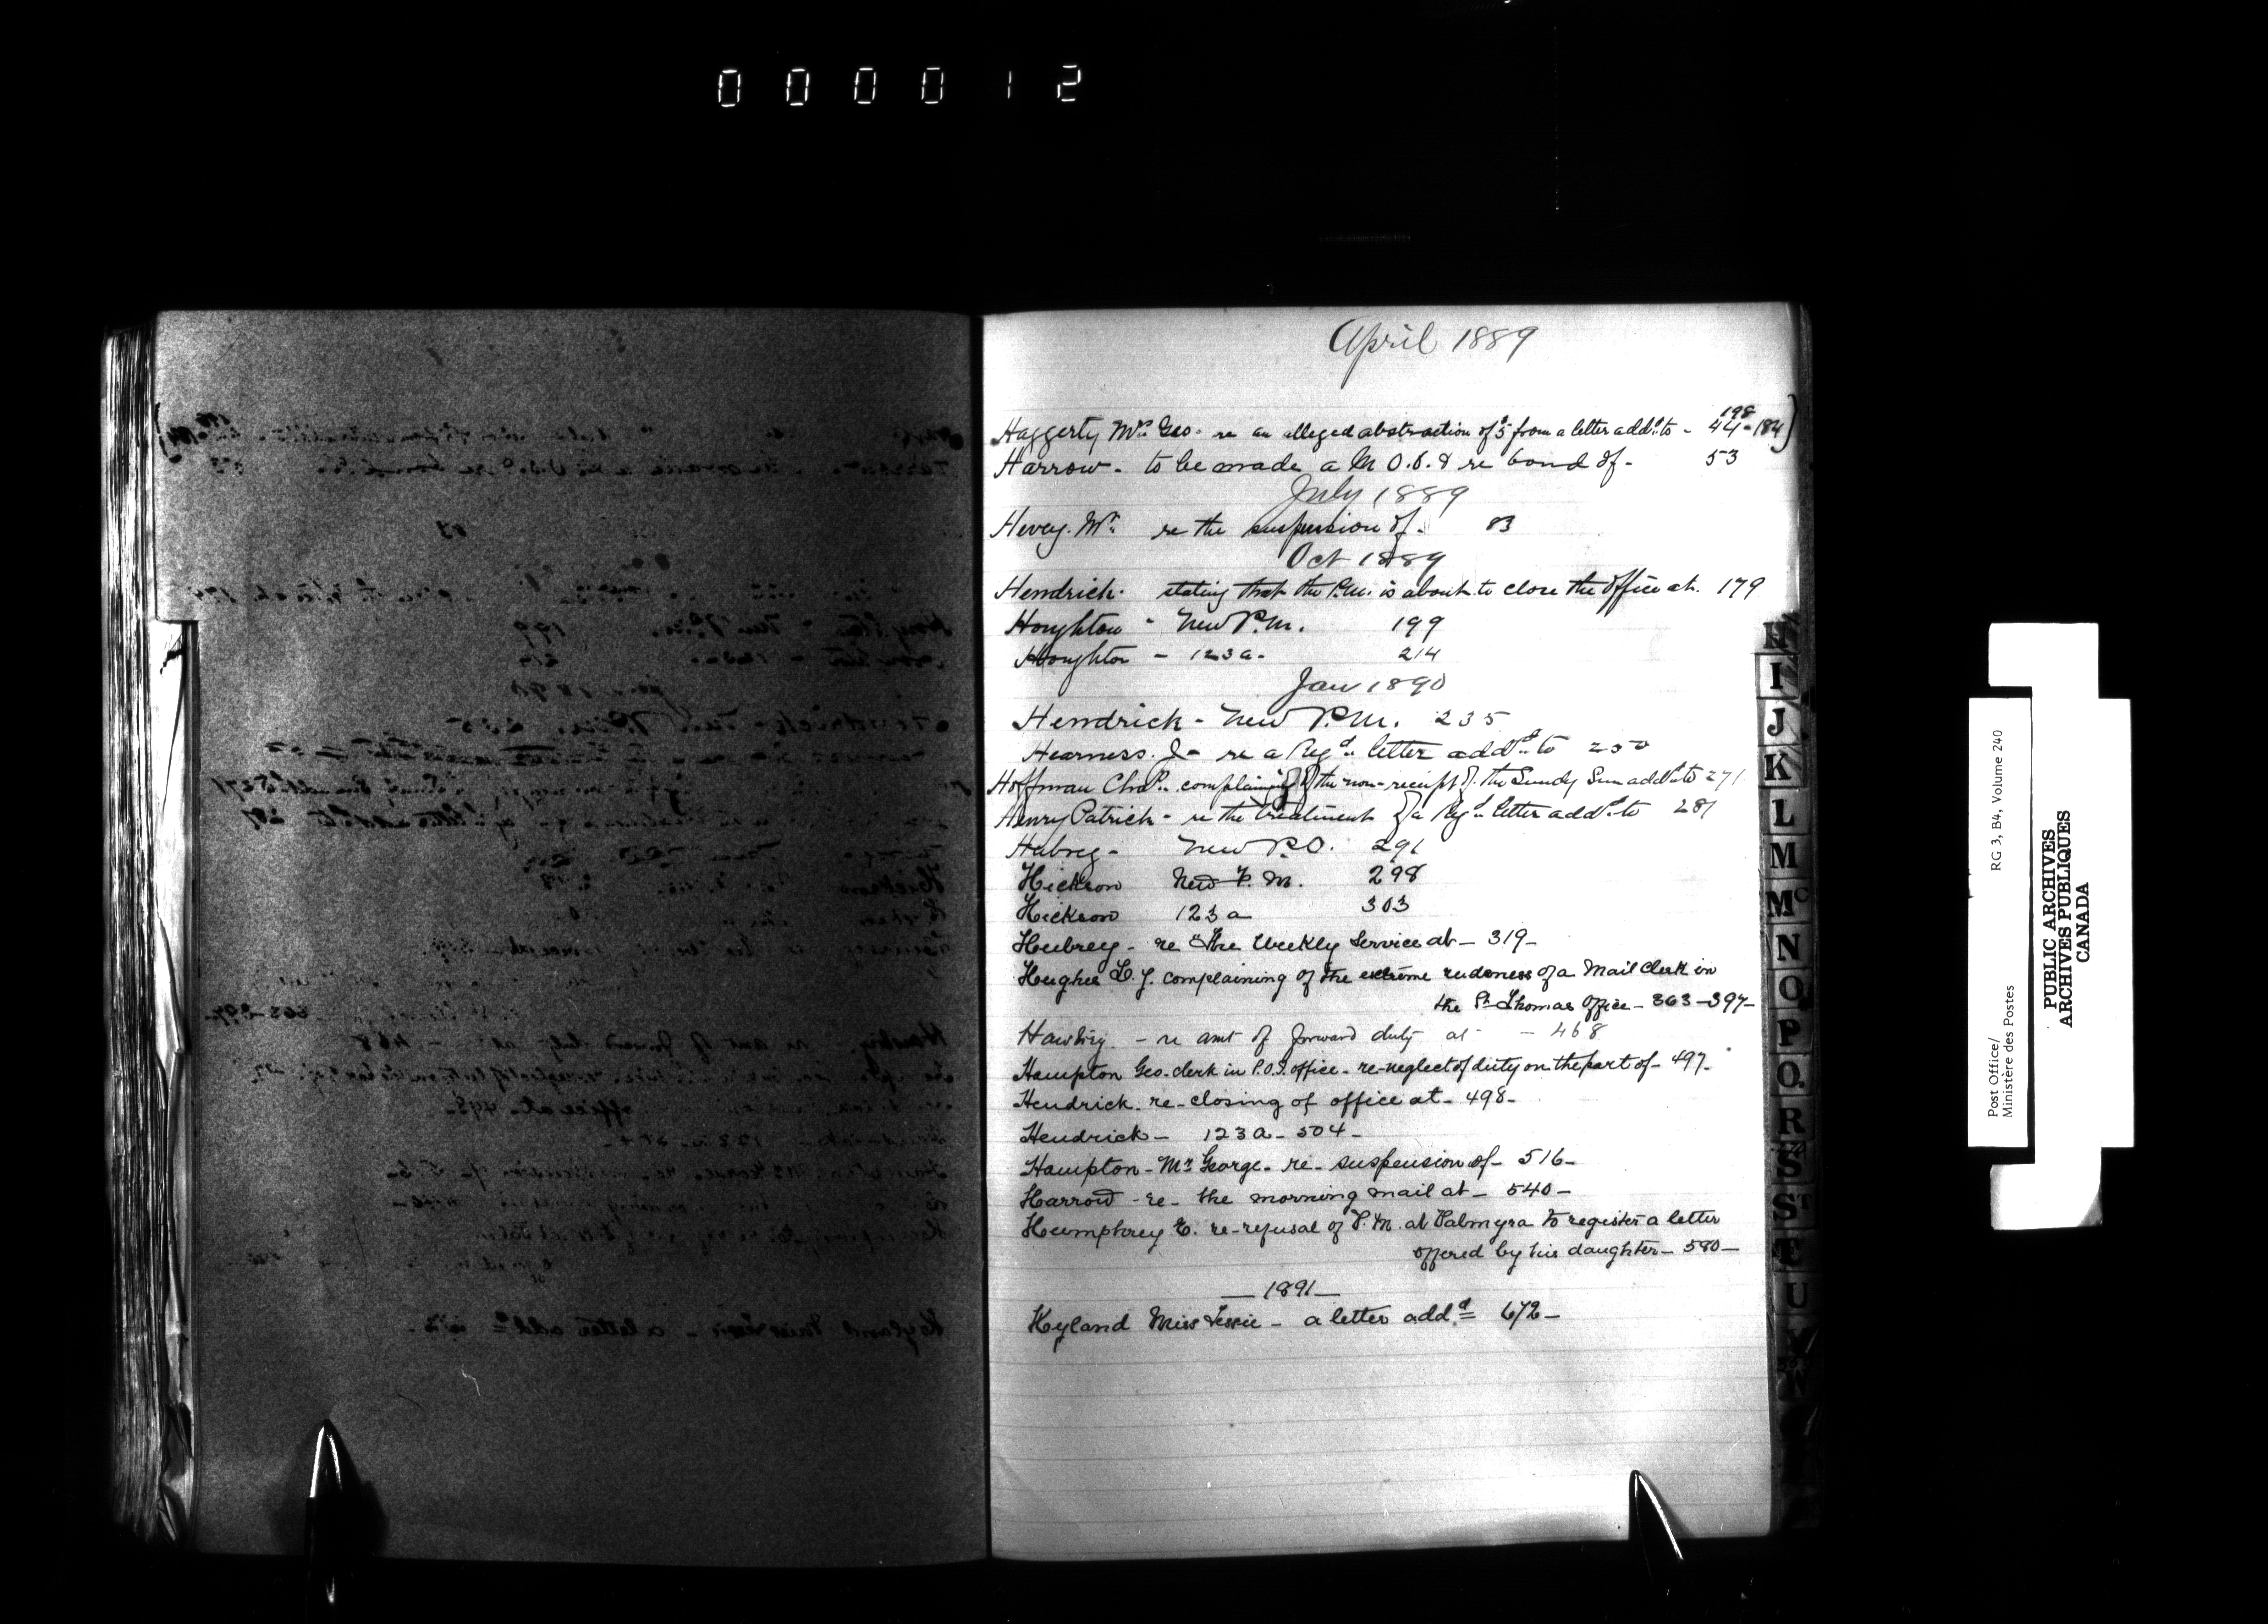 000012
April 1889
198
Haggerty Mrs Geo. re an alleged abstraction of $5 from a letter addd to - 44-184)
Harrow - to be made a M.O.O. & re bond of - 53
July 1889
Hevey. Mr. re the suspension of. 83
Oct 1889
Hendrick. stating that the P.M. is about to close the office at. 179
Houghton - New P.M. 199
Houghton - 123a. 214
Jan 1890
Hendrick - New P.M. 235
Hearness. J - re a Regd. letter addd to 250
Hoffman Chas. complaining of the non-receipt of the Sundy Sun addd to 271
Henry Patrick - re the treatment of a Regd letter addd to 281
New P.O. 291
Hickson New P.M. 298
Hickson 123a 303
Hubrey - re the Weekly Service at - 319 -
Hughes L. J. complaining of the extreme rudeness of a Mail Clerk in
the St Thomas Office - 363 - 397 -
- re amt of forward duty at - 468
Hampton Geo. clerk in P.O.I. office - re-neglect of duty on the part of - 497 -
Hendrick. re-closing of office at - 498 -
Hendrick - 123a - 504 -
Hampton - Mr George - re - suspension of - 516 -
Harrow - re - the morning mail at - 540 -
Humphrey E. re-refusal of P.M. at Palmyra to register a letter
offered by his daughter - 580 -
— 1891 —
Hyland Miss Tessie - a letter addd 672 -
H
I
J
K
L
M
Mc
N
O
P
Q
R
S
ST
U
Post Office/
Ministère des Postes
RG 3, B4, Volume 240
PUBLIC ARCHIVES
ARCHIVES PUBLIQUES
CANADA